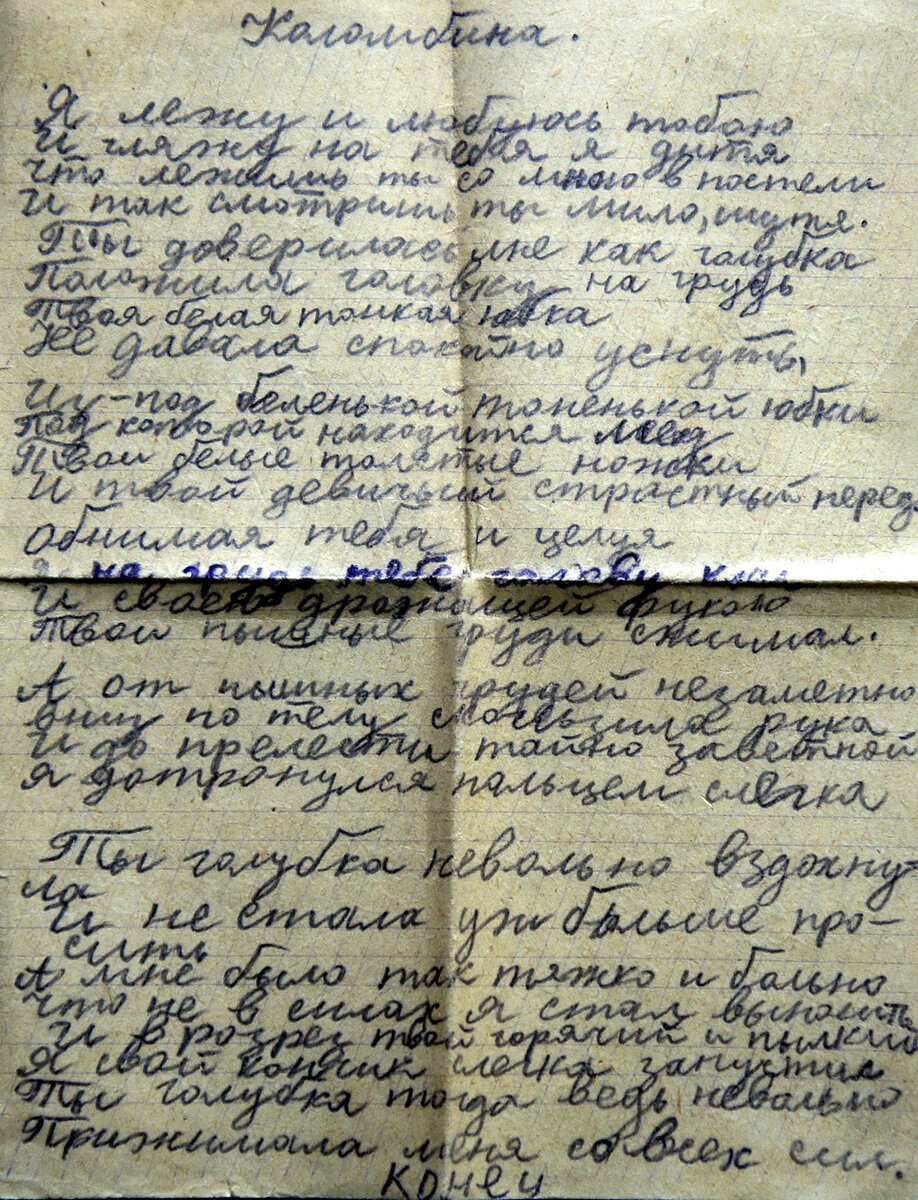 Коломбина.
Я лежу и любуюсь тобою
И гляжу на тебя я дитя
что лежишь ты со мною в постели
И так смотришь ты мило, шутя.
Ты доверилась мне как голубка
Положила головку на грудь
Твоя белая тонкая юбка
Не давала спокойно уснуть,
Из-под беленькой тоненькой юбки
Под которой находится мёд
Твои белые толстые ножки
И твой девичьий страстный перед
обнимая тебя и целуя
Я на грудь тебе голову клал
И своею дрожащей рукою
Твои пышные груди сжимал.
А от пышных грудей незаметно
вниз по телу скользила рука
И до прелести тайно заветной
Я дотронулся пальцем слегка
Ты голубка невольно вздохну-
ла
И не стала уж больше про-
сить
А мне было так тяжко и больно
что не в силах я стал выносить
И в розрез твой горячий и пылкий
Я свой кончик слегка запустил
Ты голубка тогда ведь невольно
Прижимала меня со всех сил.
Конец